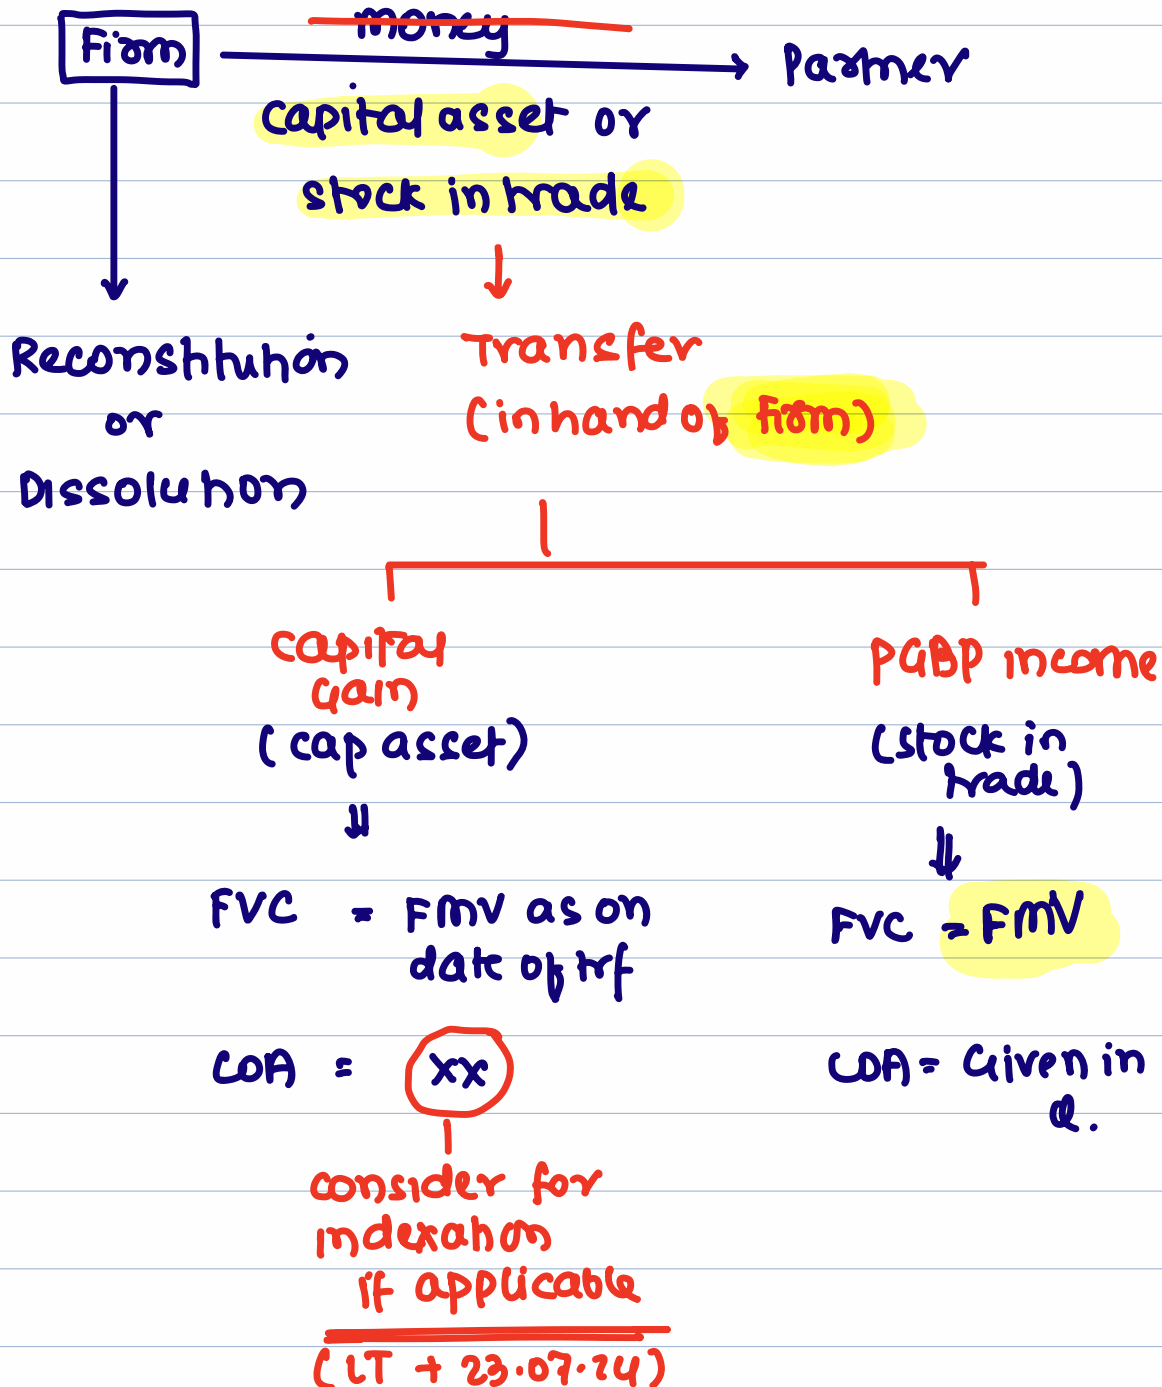 Firm
money
Partner
capital asset or
stock in trade
Reconstitution
or
Dissolution
Transfer
(in hand of firm)
capital
gain
(cap asset)
FVC = FMV as on
date of trf
COA = xx
consider for
indexation
if applicable
(LT + 23.07.24)
PGBP income
(stock in
trade)
FVC = FMV
COA = Given in
Q.